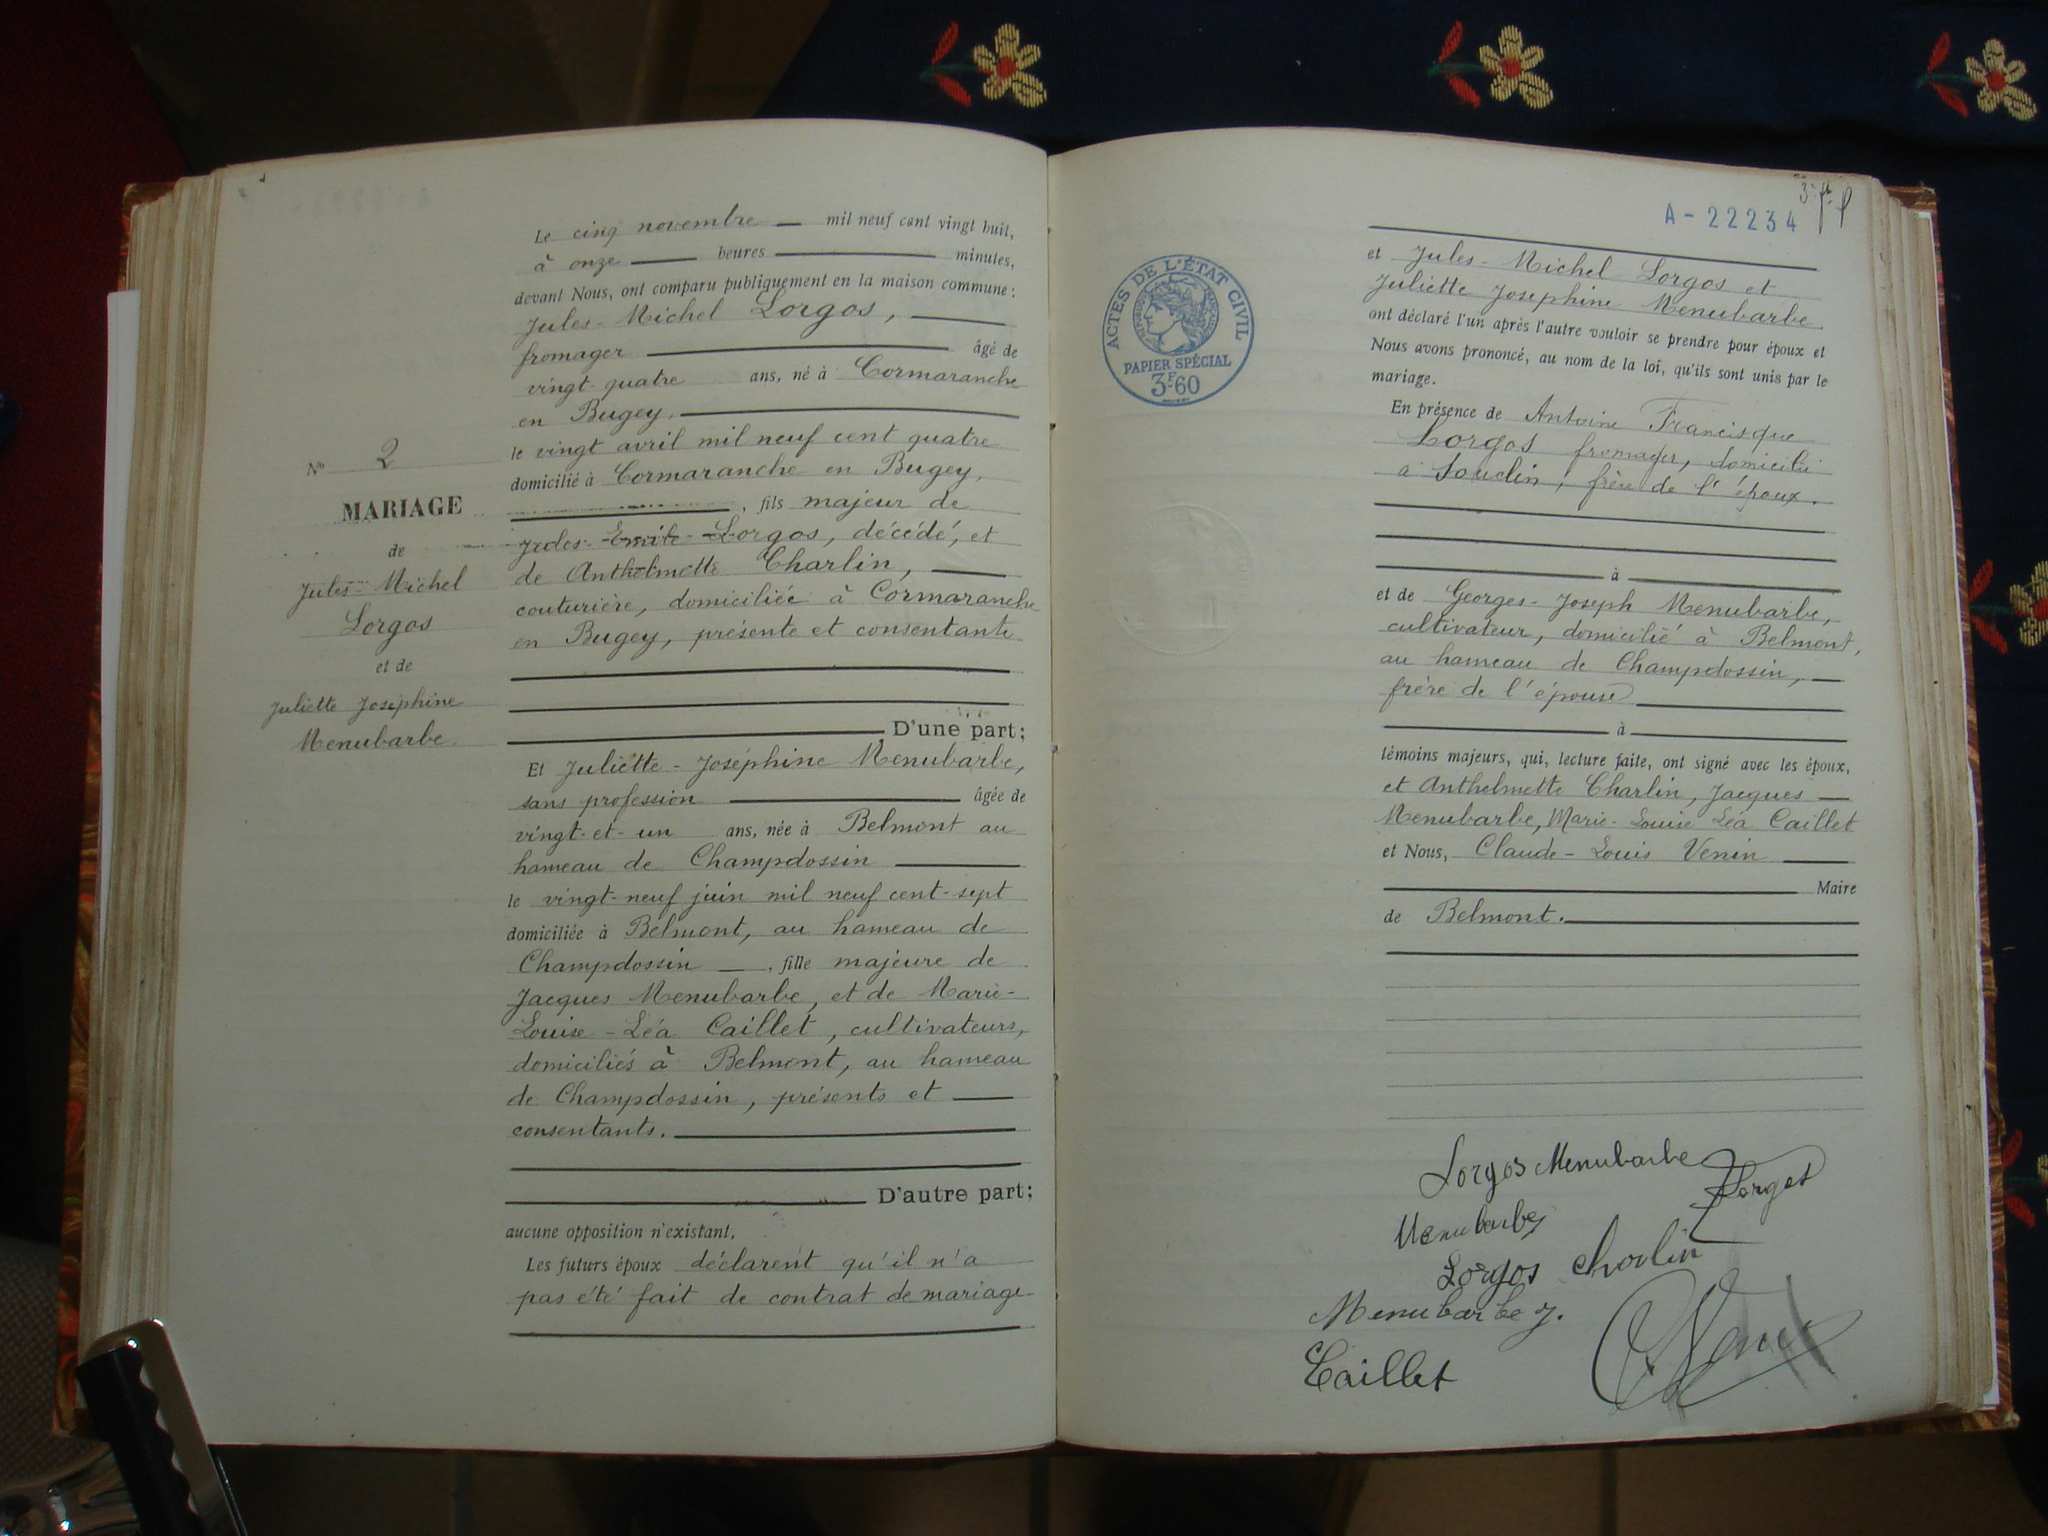 Le cinq novembre mil neuf cent vingt huit,
à onze heures minutes,
devant Nous, ont comparu publiquement en la maison commune :
Jules-Michel Lorgos,
fromager âgé de
vingt-quatre ans, né à Cormaranche
en Bugey.
le vingt avril mil neuf cent quatre
domicilié à Cormaranche en Bugey,
, fils majeur de
Jules-Emile Lorgos, décédé, et
de Anthelmette Charlin,
couturière, domiciliée à Cormaranche
en Bugey, présente et consentante
D'une part ;
Et Juliette-Joséphine Menubarbe,
sans profession âgée de
vingt-et-un ans, née à Belmont au
hameau de Champdossin
le vingt-neuf juin mil neuf cent-sept
domiciliée à Belmont, au hameau de
Champdossin, fille majeure de
Jacques Menubarbe, et de Marie-
Louise-Léa Caillet, cultivateurs,
domiciliés à Belmont, au hameau
de Champdossin, présents et
consentants.
D'autre part ;
aucune opposition n'existant.
Les futurs époux déclarent qu'il n'a
pas été fait de contrat de mariage
No 2
MARIAGE
de
Jules-Michel
Lorgos
et de
Juliette Joséphine
Menubarbe.
A-22234
ACTES DE L'ÉTAT CIVIL
PAPIER SPÉCIAL
3F60
et Jules-Michel Lorgos et
Juliette Joséphine Menubarbe
ont déclaré l'un après l'autre vouloir se prendre pour époux et
Nous avons prononcé, au nom de la loi, qu'ils sont unis par le
mariage.
En présence de Antoine Francisque
Lorgos fromager, domicilié
à Souclin, frère de l'époux.
à
et de Georges-Joseph Menubarbe,
cultivateur, domicilié à Belmont,
au hameau de Champdossin,
frère de l'épouse
à
témoins majeurs, qui, lecture faite, ont signé avec les époux,
et Anthelmette Charlin, Jacques
Menubarbe, Marie-Louise Léa Caillet
et Nous, Claude-Louis Venin
Maire
de Belmont.
Lorgos Menubarbe
Lorgos
Menubarbe
Lorgos Charlin
Menubarbe J.
Caillet